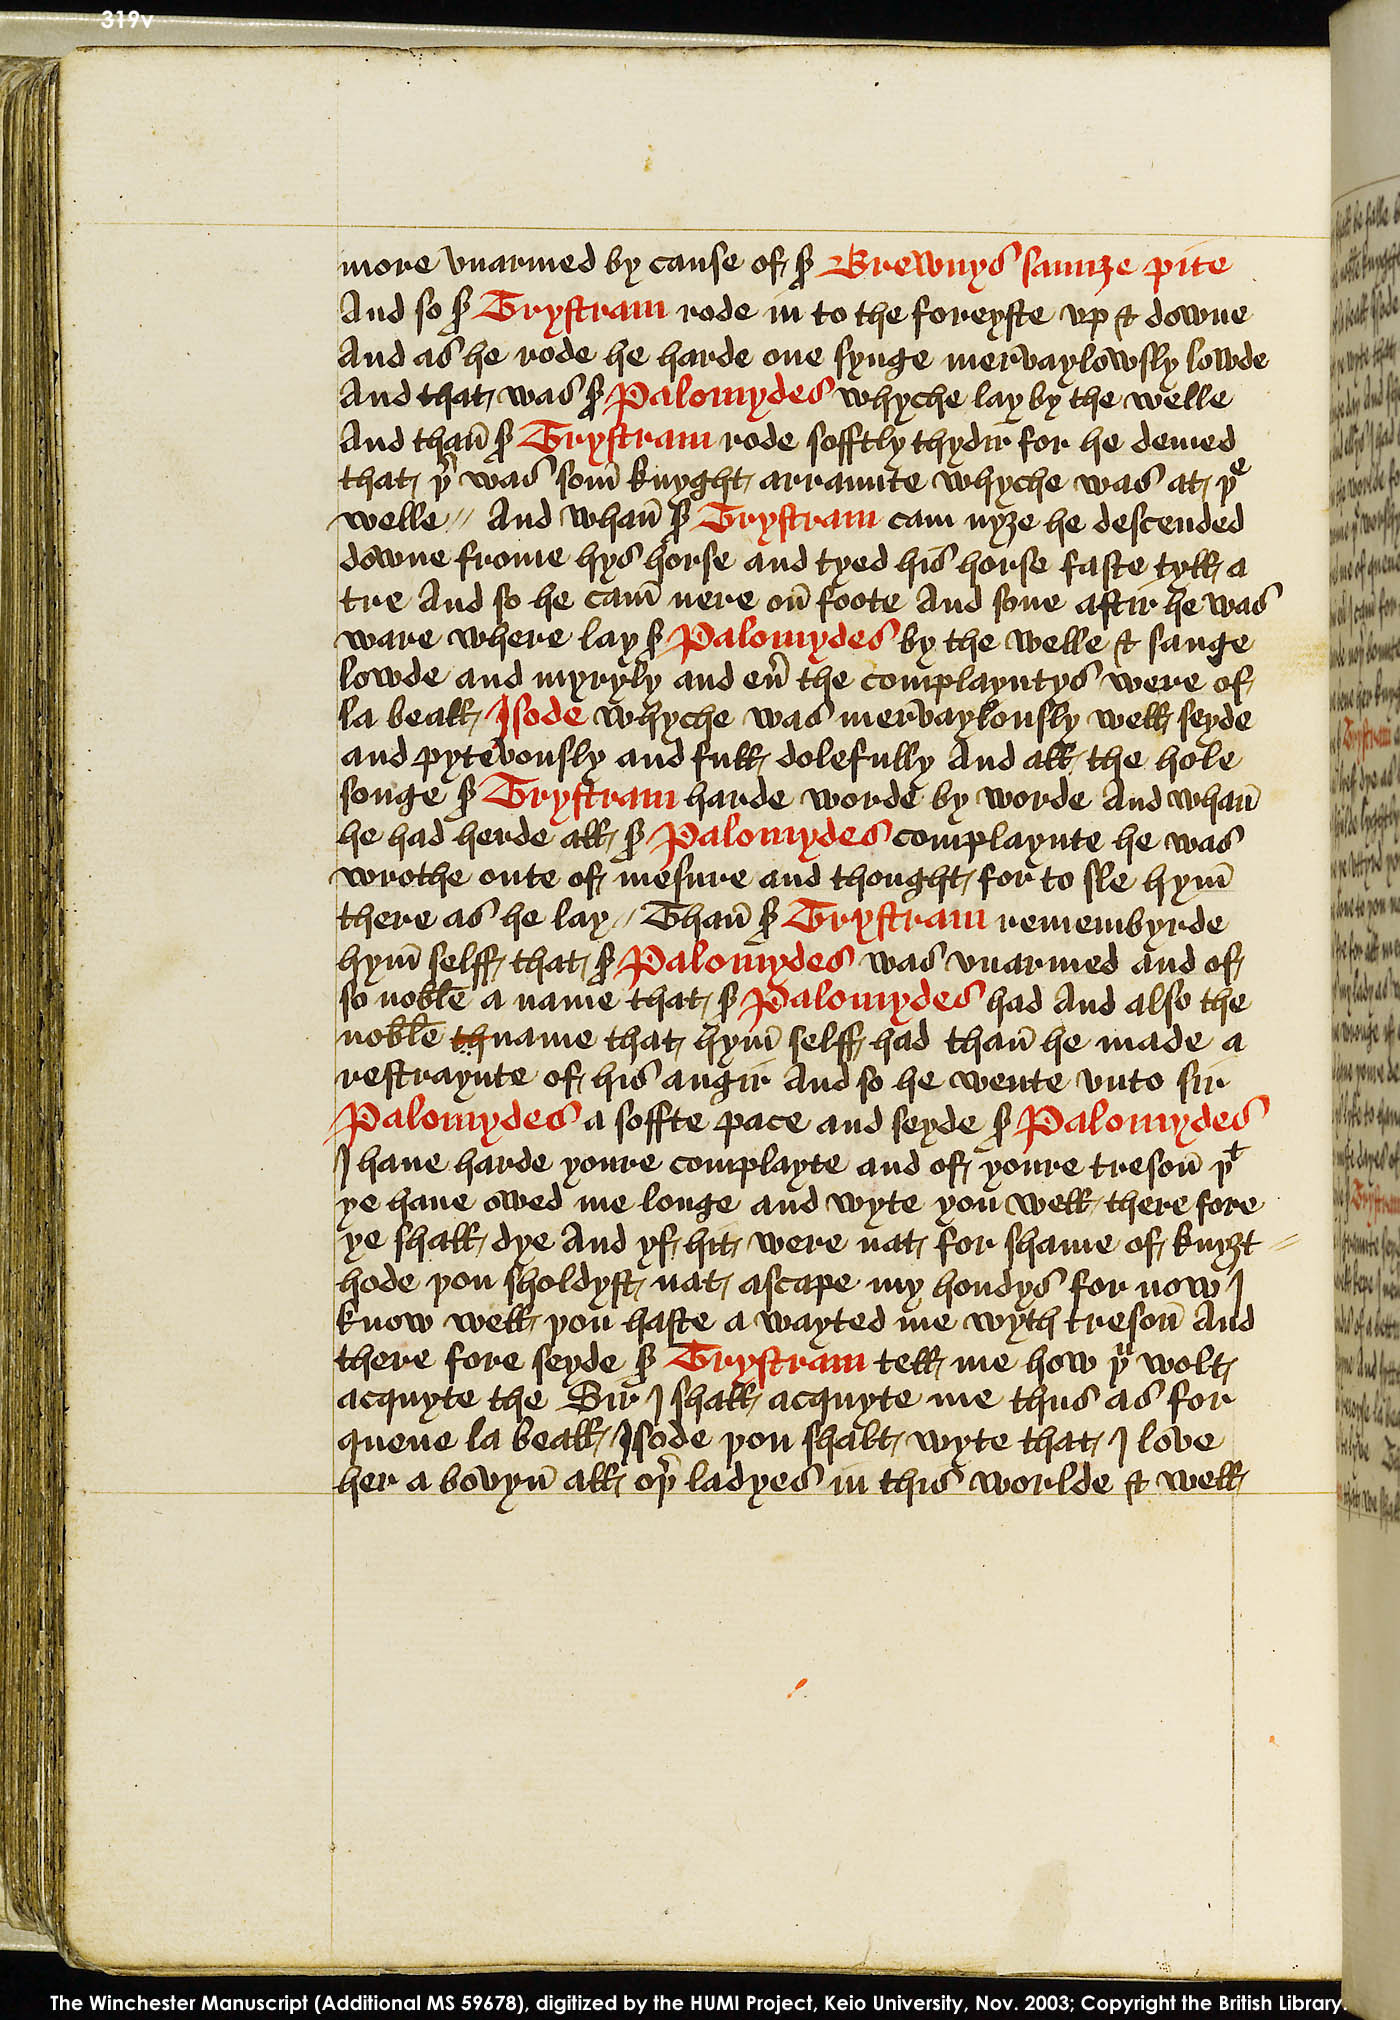 319v
more vnarmed by cause of s̃ Brewnys saunze pite
And so s̃ Trystram rode in to the foreyste vp & downe
And as he rode he harde one synge mervaylowsly lowde
And that was s̃ Palomydes whyche lay by the welle
And thañ s̃ Trystram rode sofftly thydir for he demed
that þʳ was som̃ knyght arraunte whyche was at þᵉ
welle // And whañ s̃ Trystram cam nyȝe he descended
downe frome hys horse and tyed his horse faste tyll a
tre And so he cam̃ nere oñ foote And sone aftir he was
ware where lay s̃ Palomydes by the welle & sange
lowde and myryly and eũ the complayntys were of
la beall Isode whyche was mervaylously well seyde
and pytevously and full dolefully And all the hole
songe s̃ Trystram harde worde by worde And whañ
he had herde all s̃ Palomydes complaynte he was
wrothe oute of mesure and thought for to sle hym̃
there as he lay // Thañ s̃ Trystram remembyrde
hym̃ selff that s̃ Palomydes was vnarmed and of
so noble a name that s̃ Palomydes had And also the
noble th name that hym̃ selff had thañ he made a
restraynte of his angir And so he wente vnto sir
Palomydes a soffte pace and seyde s̃ Palomydes
I haue harde youre complayte and of youre tresoñ þᵗ
ye haue owed me longe and wyte you well there fore
ye shall dye And yf hit were nat for shame of knyȝt =
hode þou sholdyst nat ascape my hondys for now I
know well þou haste a wayted me wyth tresoñ And
there fore seyde s̃ Trystram tell me how þᵘ wolt
acquyte the Sir I shall acquyte me thus as for
quene la beall Isode þou shalt wyte that I love
her a bovyñ all oþʳ ladyes in this worlde & well
The Winchester Manuscript (Additional MS 59678), digitized by the HUMI Project, Keio University, Nov. 2003; Copyright the British Library.